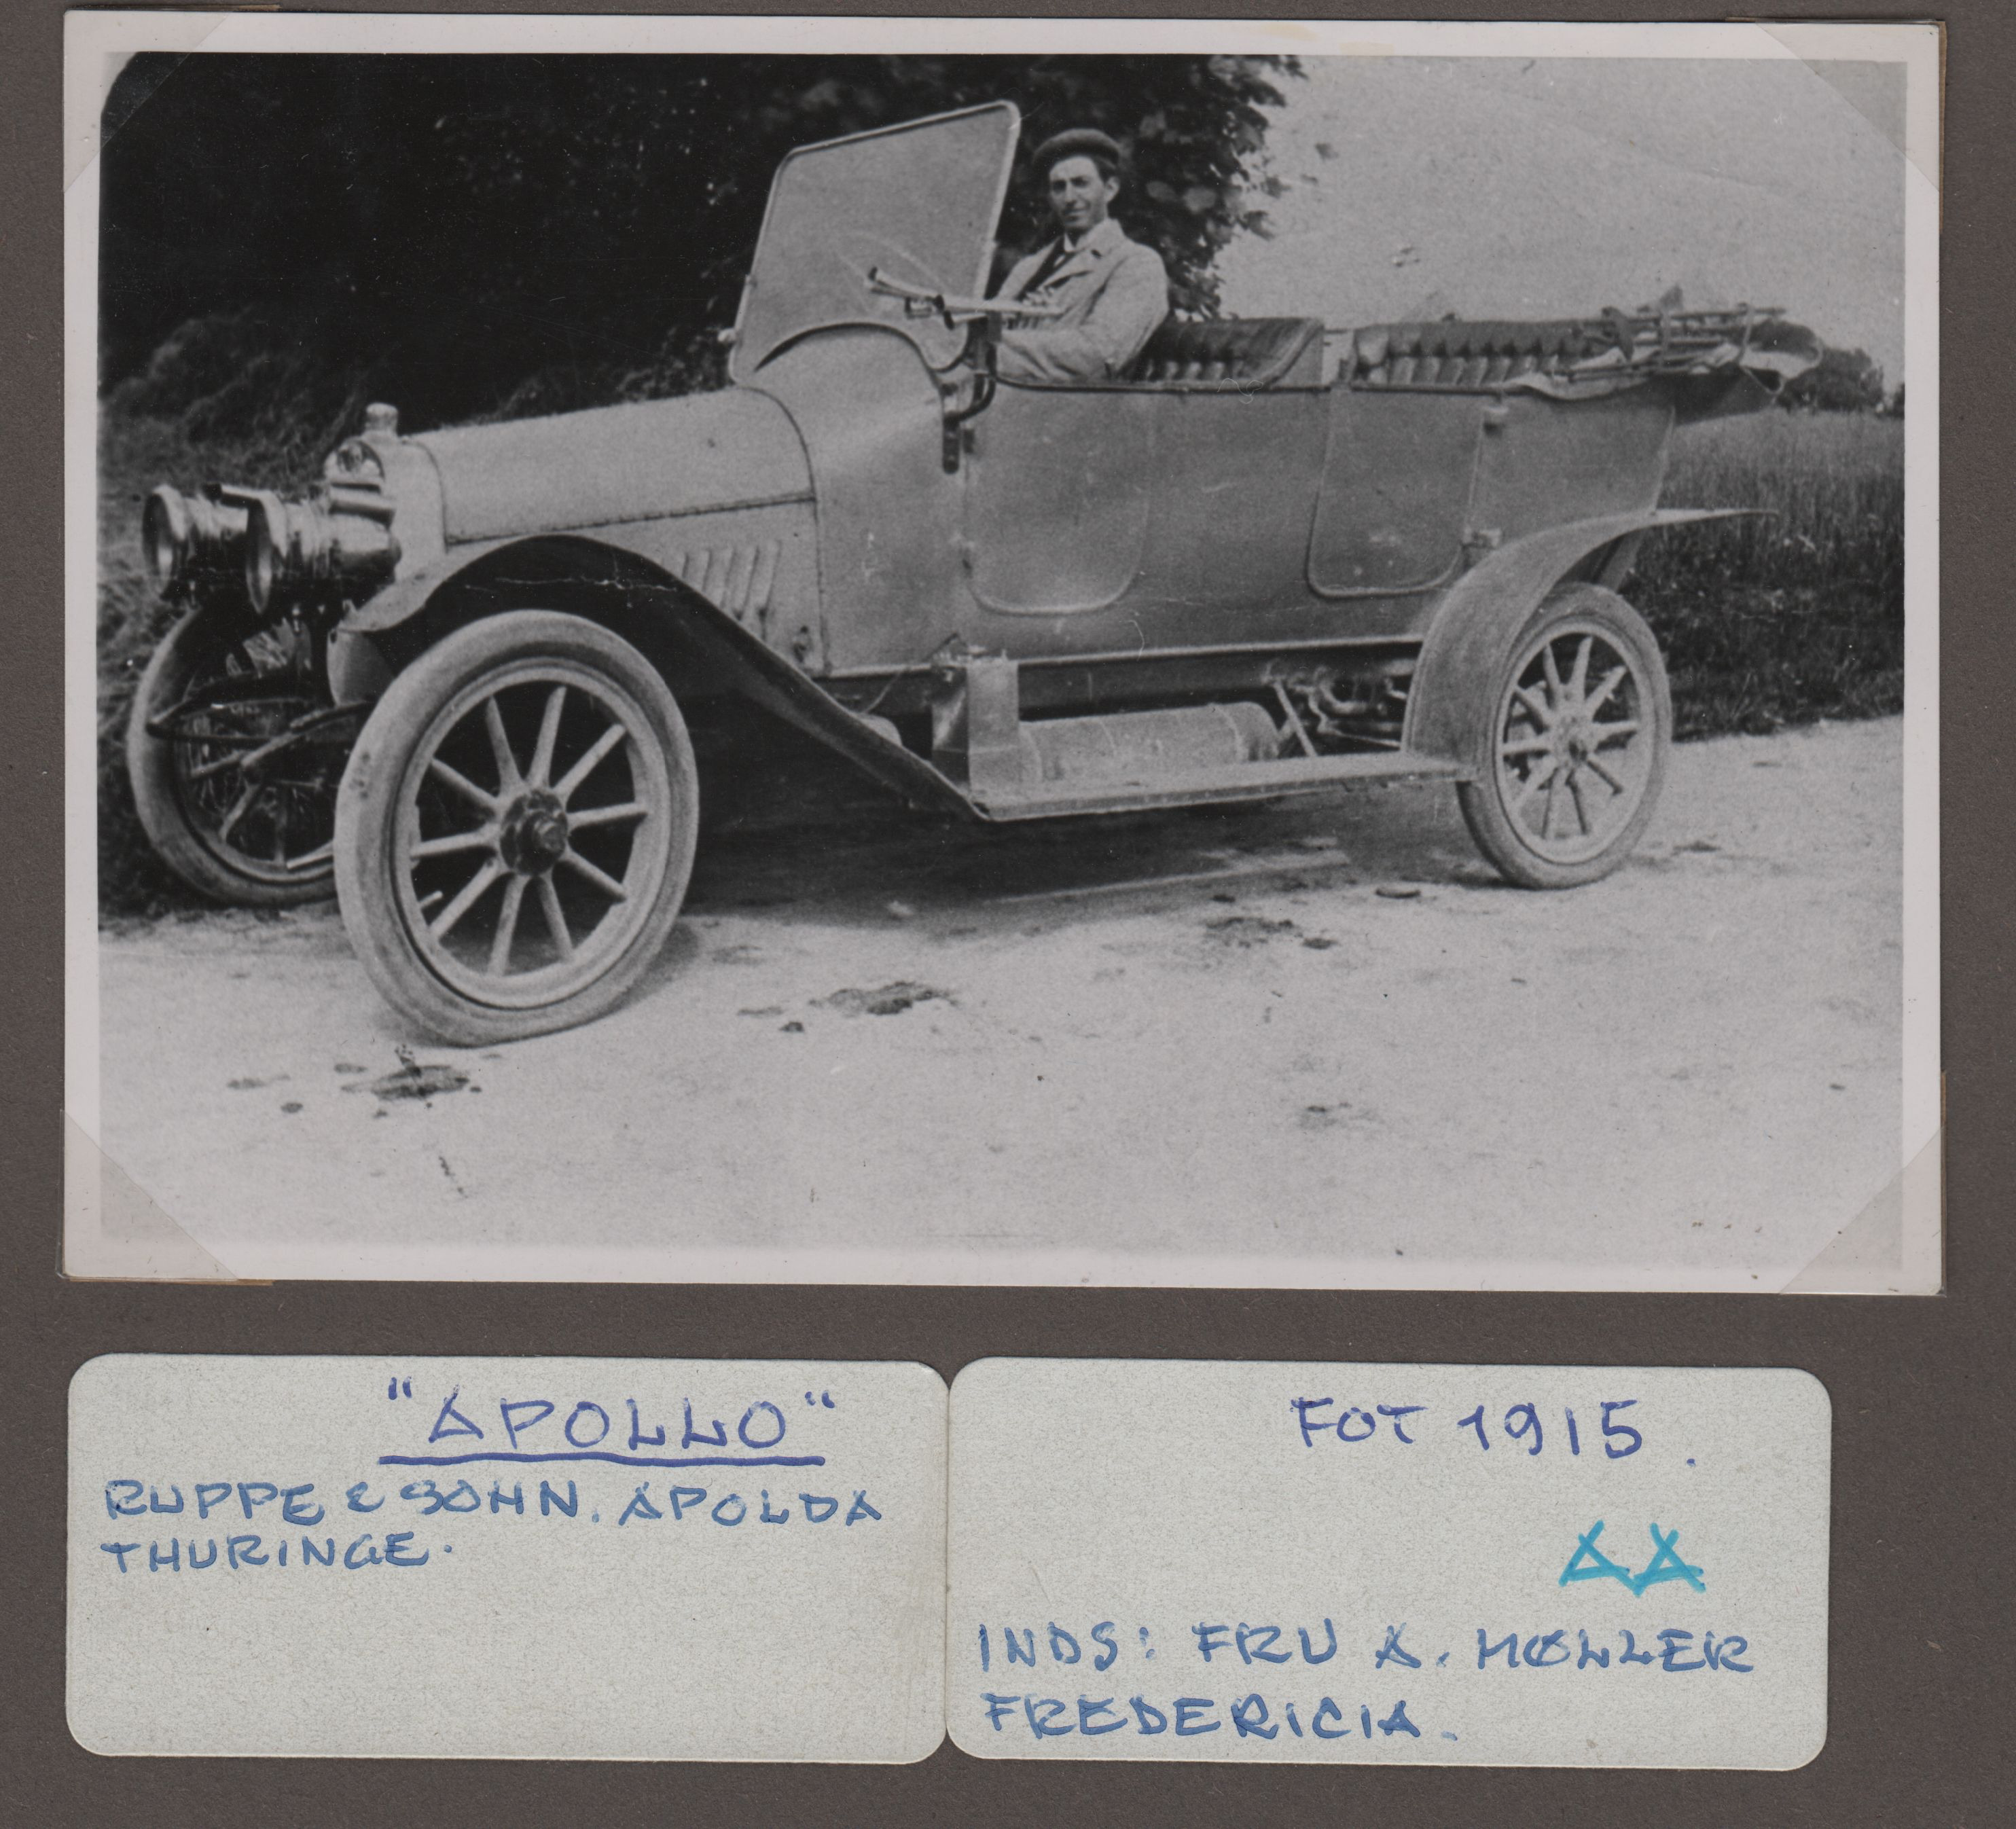 "APOLLO"
RUPPE & SOHN. APOLDA
THURINGE.
FOT 1915.
AA
INDS: FRU A. MØLLER
FREDERICIA.